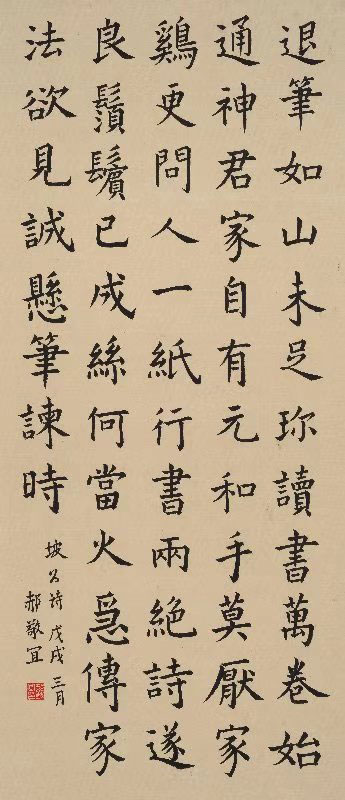 退筆如山未足珎讀書萬卷始
通神君家自有元和手莫厭家
鷄更問人一紙行書兩絶詩遂
良鬚鬢已成絲何當火急傳家
法欲見誠懸筆諫時
坡公詩戊戌三月
郝敬冝